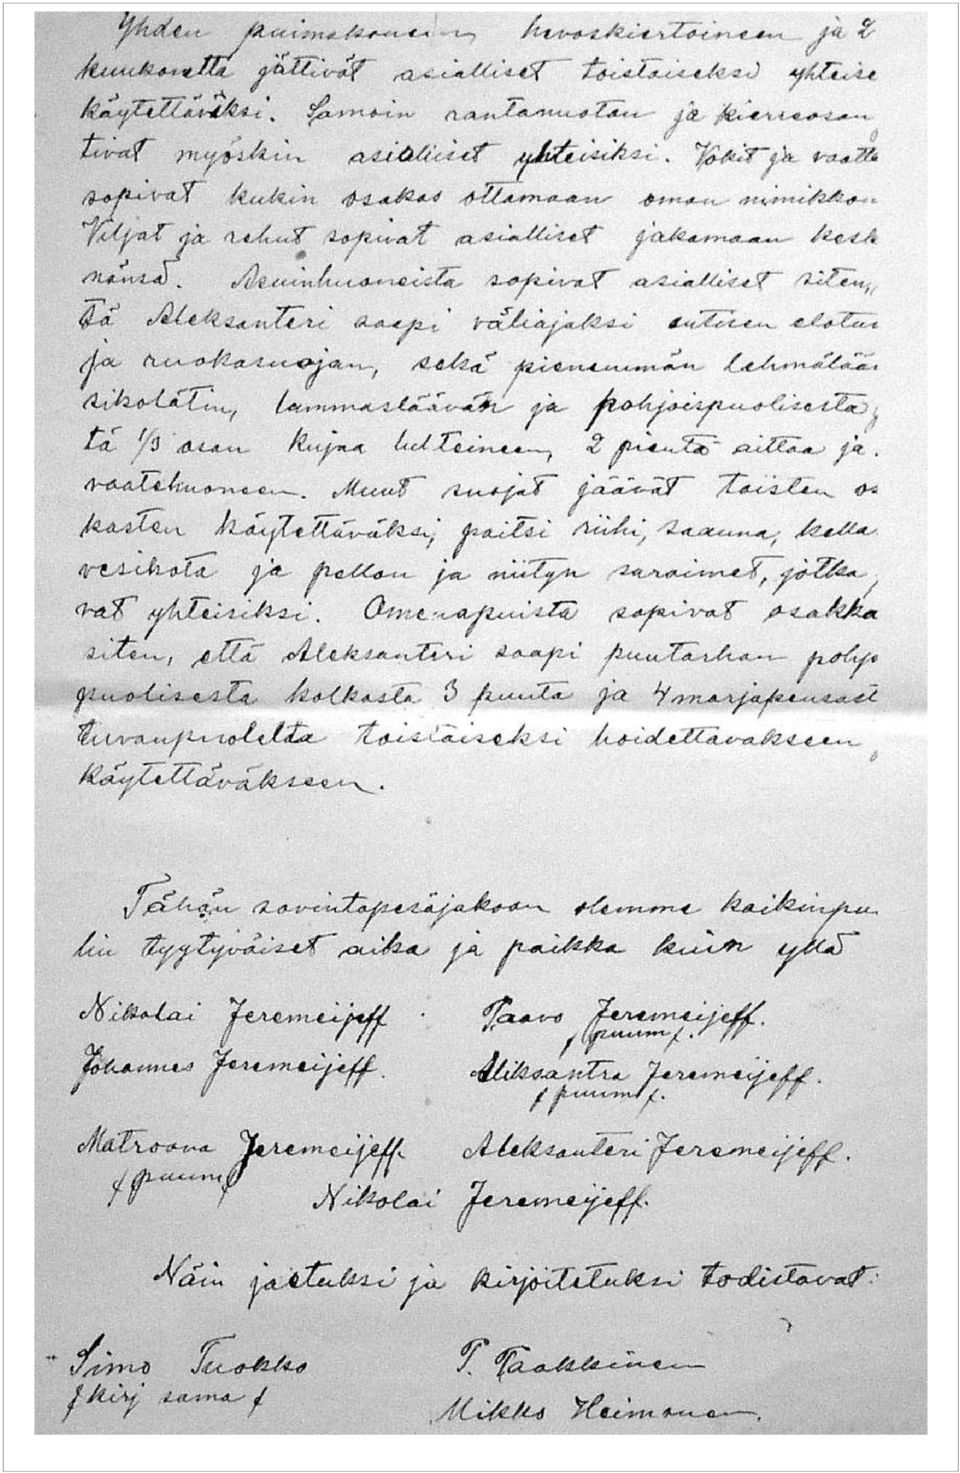 Yhden puimakoneen hevoskiertoineen ja 2
kuukonetta jättivät asialliset toistaiseksi yhteise
käytettäväksi. Samoin rantanuotan ja kierreosan
tivat myöskin asialliset yhteisiksi. Vokit ja vaatte
sopivat kukin osakas ottamaan oman nimikkon
Viljat ja rehut sopivat asialliset jakamaan kesk
nänsä. Asuinhuoneista sopivat asialliset siten,
tä Aleksanteri saapi väliajaksi entisen elotus
ja ruokasuojan, sekä pienemmän lehmälään
sikolätin, lammasläävän ja pohjoispuolisesta
tä 1/3 osan kujaa luhteineen, 2 pientä aittaa ja
vaatehuoneen. Muut suojat jäävät toisten os
kasten käytettäväksi, paitsi riihi, saauna, kella
vesikota ja pellon ja niityn saraimet, jotka
vat yhteisiksi. Omenapuista sopivat osakka
siten, että Aleksanteri saapi puutarhan pohjo
puolisesta kolkasta 3 puuta ja 4 marjapensast
tuvanpuolelta toistaiseksi hoidettavakseen
käytettäväkseen.
Tähän sovintopesäjakoon olemme kaikinpu
lin tyytyväiset aika ja paikka kuin yllä
Nikolai Jeremeijeff. Paavo Jeremeijeff.
puum
Johannes Jeremeijeff. Aliksantra Jeremeijeff.
puum
Matroona Jeremeijeff. Aleksanteri Jeremeijeff.
puum
Nikolai Jeremeijeff.
Näin jaetuksi ja kirjoitetuksi todistavat:
Simo Tuokko P. Paakkinen
kirj sama
Mikko Heimonen.